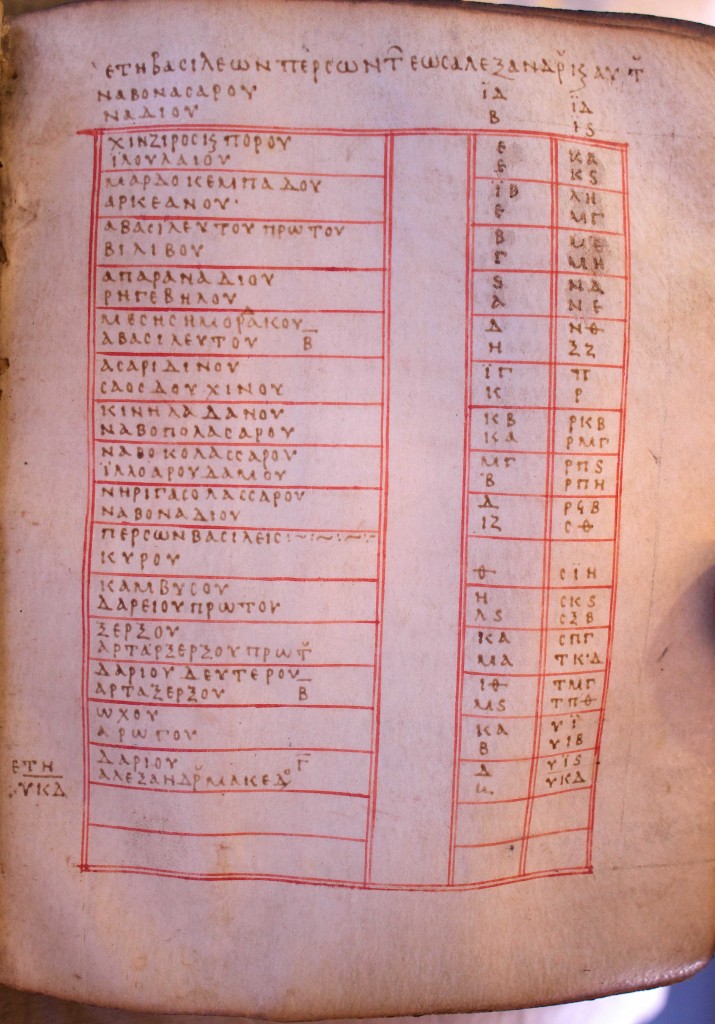 ΕΤΗ ΒΑCΙΛΕΩΝ ΠΕΡCΩΝ ΕΩC ΑΛΕΞΑΝΔΡ
ΝΑΒΟΝΑCΑΡΟΥ ΙΔ ΙΔ
ΝΑΔΙΟΥ Β Ιϛ
ΧΙΝΖΙΡΟC Ϗ ΠΟΡΟΥ Ε ΚΑ
ΙΛΟΥΛΑΙΟΥ Ε Κϛ
ΜΑΡΔΟΚΕΜΠΑΔΟΥ ΙΒ ΛΗ
ΑΡΚΕΑΝΟΥ Ε ΜΓ
ΑΒΑCΙΛΕΥΤΟΥ ΠΡΩΤΟΥ Β ΜΕ
ΒΙΛΙΒΟΥ Γ ΜΗ
ΑΠΑΡΑΝΑΔΙΟΥ ϛ ΝΔ
ΡΗΓΕΒΗΛΟΥ Α ΝΕ
ΜΕCΗCΗΜΟΡΔΑΚΟΥ Δ ΝΘ
ΑΒΑCΙΛΕΥΤΟΥ Β Η ΞΖ
ΑCΑΡΙΔΙΝΟΥ ΙΓ Π
CΑΟCΔΟΥΧΙΝΟΥ Κ Ρ
ΚΙΝΗΛΑΔΑΝΟΥ ΚΒ ΡΚΒ
ΝΑΒΟΠΟΛΑCΑΡΟΥ ΚΑ ΡΜΓ
ΝΑΒΟΚΟΛΑCCΑΡΟΥ ΜΓ ΡΠϛ
ΙΛΛΟΑΡΟΥΔΑΜΟΥ Β ΡΠΗ
ΝΗΡΙΓΑCΟΛΑCCΑΡΟΥ Δ ΡϞΒ
ΝΑΒΟΝΑΔΙΟΥ ΙΖ CΘ
ΠΕΡCΩΝ ΒΑCΙΛΕΙC
ΚΥΡΟΥ Θ CΙΗ
ΚΑΜΒΥCΟΥ Η CΚϛ
ΔΑΡΕΙΟΥ ΠΡΩΤΟΥ Λϛ CΞΒ
ΞΕΡΞΟΥ ΚΑ CΠΓ
ΑΡΤΑΡΞΕΡΞΟΥ ΠΡΩΤ ΜΑ ΤΚΔ
ΔΑΡΙΟΥ ΔΕΥΤΕΡΟΥ ΙΘ ΤΜΓ
ΑΡΤΑΞΕΡΞΟΥ Β Μϛ ΤΠΘ
ΩΧΟΥ ΚΑ ΥΙ
ΑΡΩΓΟΥ Β ΥΙΒ
ΔΑΡΙΟΥ Γ Δ ΥΙϛ
ΑΛΕΞΑΝΔΡ ΜΑΚΕΔΟ Η ΥΚΔ
ΕΤΗ
ΥΚΔ